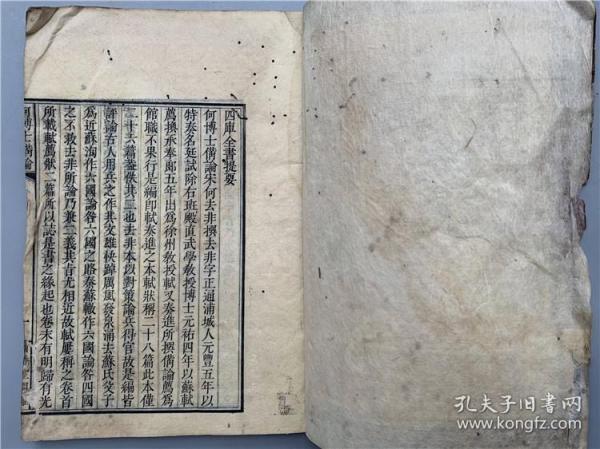 四庫全書提要
何博士備論宋何去非撰去非字正通浦城人元豐五年以
特奏名廷試除右班殿直武學敎授博士元祐四年以蘇軾
薦換承奉郎五年出爲徐州敎授軾又奏進所撰備論薦爲
館職不果行是編即軾奏進之本軾狀稱二十八篇此本僅
二十六篇蓋佚其二也去非本以對策論兵得官故是編皆
評論古人用兵之作其文雄快踔厲風發泉涌去蘇氏父子
爲近蘇洵作六國論咎六國之賂秦蘇轍作六國論咎四國
之不救去非所論乃兼二義其旨尤相近故軾屢稱之卷首
所載軾薦狀二篇所以誌是書之緣起也卷末有明歸有光
何博士備論
一
孔夫子旧書网
www.kongfz.com